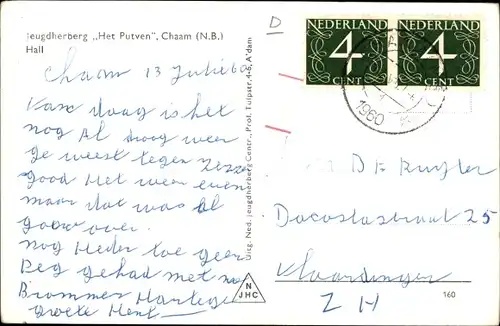 Jeugdherberg „Het Putven", Chaam (N.B.)
Hall
Chaam 13 Julie 60
daag is het
nog Al droog weer
ge weest tegen
goed Het weer even
maar dat was Al
over.
nog Heder toe geen
Reg gehad met
Brommer Hartege
groete Henk
Uitg. Ned. Jeugdherberg Centr., Prof. Tulpstr. 4-6, A'dam
N
JHC
D
NEDERLAND
4
CENT
NEDERLAND
4
CENT
1960
DE Ruyter
Dacostastraat 25
Vlaardingen
Z H
160